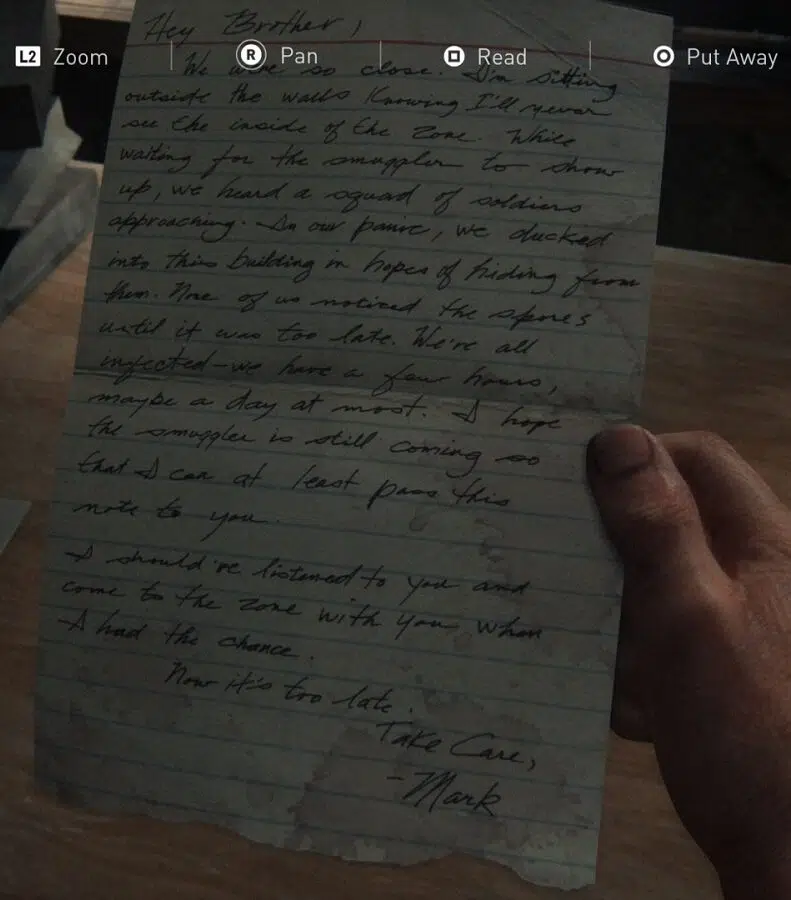 Hey Brother,
L2 Zoom R Pan Read Put Away
We were so close. I'm sitting
outside the walls knowing I'll never
see the inside of the zone. While
waiting for the smuggler to show
up, we heard a squad of soldiers
approaching. In our panic, we ducked
into this building in hopes of hiding from
them. None of us noticed the spores
until it was too late. We're all
infected-we have a few hours,
maybe a day at most. I hope
the smuggler is still coming so
that I can at least pass this
note to you.
I should've listened to you and
come to the zone with you when
I had the chance.
Now it's too late.
Take Care,
-Mark